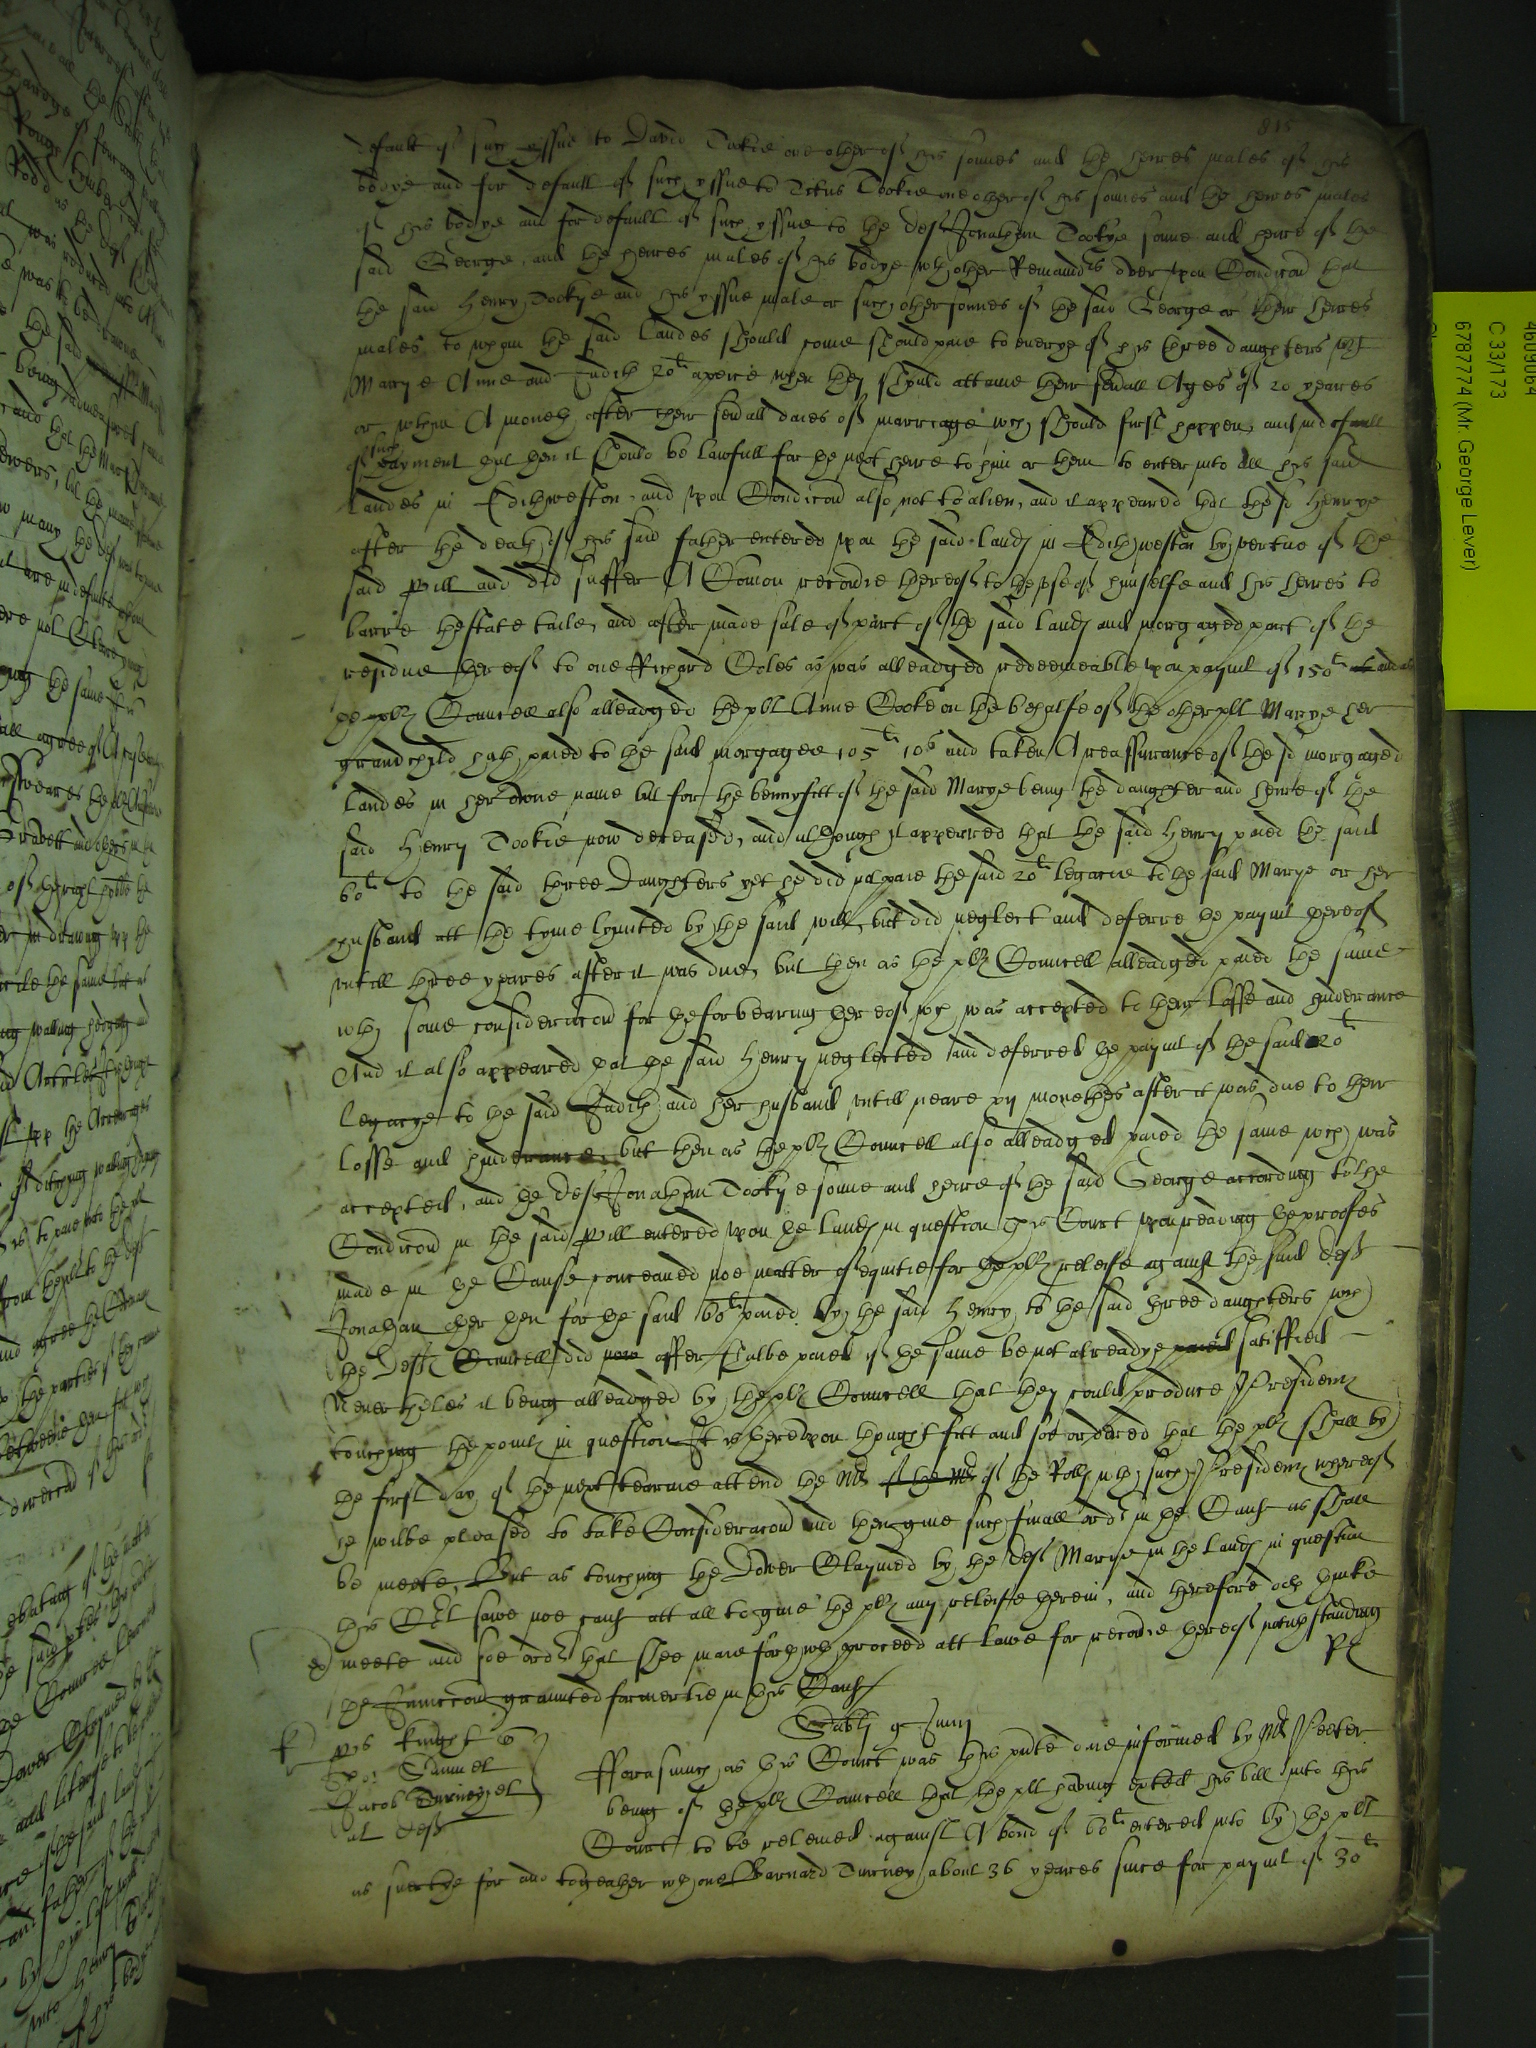 815
default of such yssue to David Tookie one other of his sonnes and the heires males of his
bodye and for default of such yssue to Titus Tookie one other of his sonnes and the heires males
of his bodye and for default of such yssue to the deft Jonathan Tookye sonne and heire of the
said George, and the heires males of his bodye wth other Remaindrs over upon Condicon that
the said Henry Tookye and his yssue male or such other sonnes of the said George or their heires
males to whom the said Landes should come should paie to everye of his three daughters vizt
Marye Anne and Judith 20li apeece when they should attaine their sevrall Ages of 20 yeares
or within A moneth after their sevrall daies of marriage wch should first happen, and in default
of such payment that then it should be lawfull for the next heire to him or them to enter into all his said
Landes in Edithweston, and upon Condicon also not to alien, and it appeared that the sd Henrye
after the death of his said father entered upon the said Landes in Edithweston by vertue of the
said Will and did suffer A Comon recovie thereof to the use of himselfe and his heires to
barre thestate taile, and after made sale of part of the said landes and morgaged part of the
residue thereof to one Richard Coles as was alleadged redeemeable upon paymt of 150li and as
the plts Councell also alleadged the plt Anne Cooke on the behalfe of the other plt Marye her
grandchild hath paied to the said morgagee 105li 10s and taken A reassurance of the sd morgaged
Landes in her owne name but for the bennyfitt of the said Marye being the daughter and heire of the
said Henry Tookie now deceased, and although it appeared that the said Henry paied the said
60li to the said three Daughters yet he did not paie the said 20li legacie to the said Marye or her
husband att the tyme lymited by the said will, but did neglect and deferre the paymt thereof
untill three yeares after it was due, but then as the plts Councell alleadged paied the same
wth some consideracon for the forbearing thereof wch was accepted to their losse and hinderance
And it also appeared that the said Henry neglected and deferred the paymt of the said 20li
legacye to the said Judith and her husband untill neare xii monethes after it was due to their
losse and hinderance, but then as the plts Councell also alleadged paied the same wch was
accepted, and the deft Jonathan Tookye sonne and heire of the said George according to the
Condicon in the said Will entered upon the landes in question This Court upon reading the proofes
made in the Cause conceaved noe matter of equitie for the plts releife against the said deft
Jonathan other then for the said 60li paied by the said Henry to the said three daughters wch
the Defts Councell did now offer shalbe paied if the same be not alreadye paied satisffied
Nevertheles it being alleadged by the plts Councell that they could produce Presidents
touching the points in question It is thereupon thought fitt and soe ordered that the plts shall by
the first day of the next tearme attend the Mr of the Mr of the Rolls wth such Presidents whereof
he wilbe pleased to take Consideracon and then give such finall ordr in the Cause as shall
be meete, But as touching the Dower Claymed by the deft Marye in the Landes in question
this Court sawe noe cause att all to give the plts any releife therein, and therefore doth thinke
meete and soe ordr that shee maie forthwth proceed att lawe for recovie thereof notwthstanding
the Iniunccon graunted formerlie in this Cause
Rx
Sabti 9o Junii
Knight
Samuel
Jacob Turney et
al deft
Fforasmuch as this Court was this pnte daie informed by Mr Peeter
being of the plts Councell that the plt having exhted his bill into this
Court to be releived against A bond of 60li entered into by the plt
as suertye for and togeather wth one Barnard Turney about 36 yeares since for paymt of 30li
4609064
C 33/173
6787774 (Mr. George Lever)